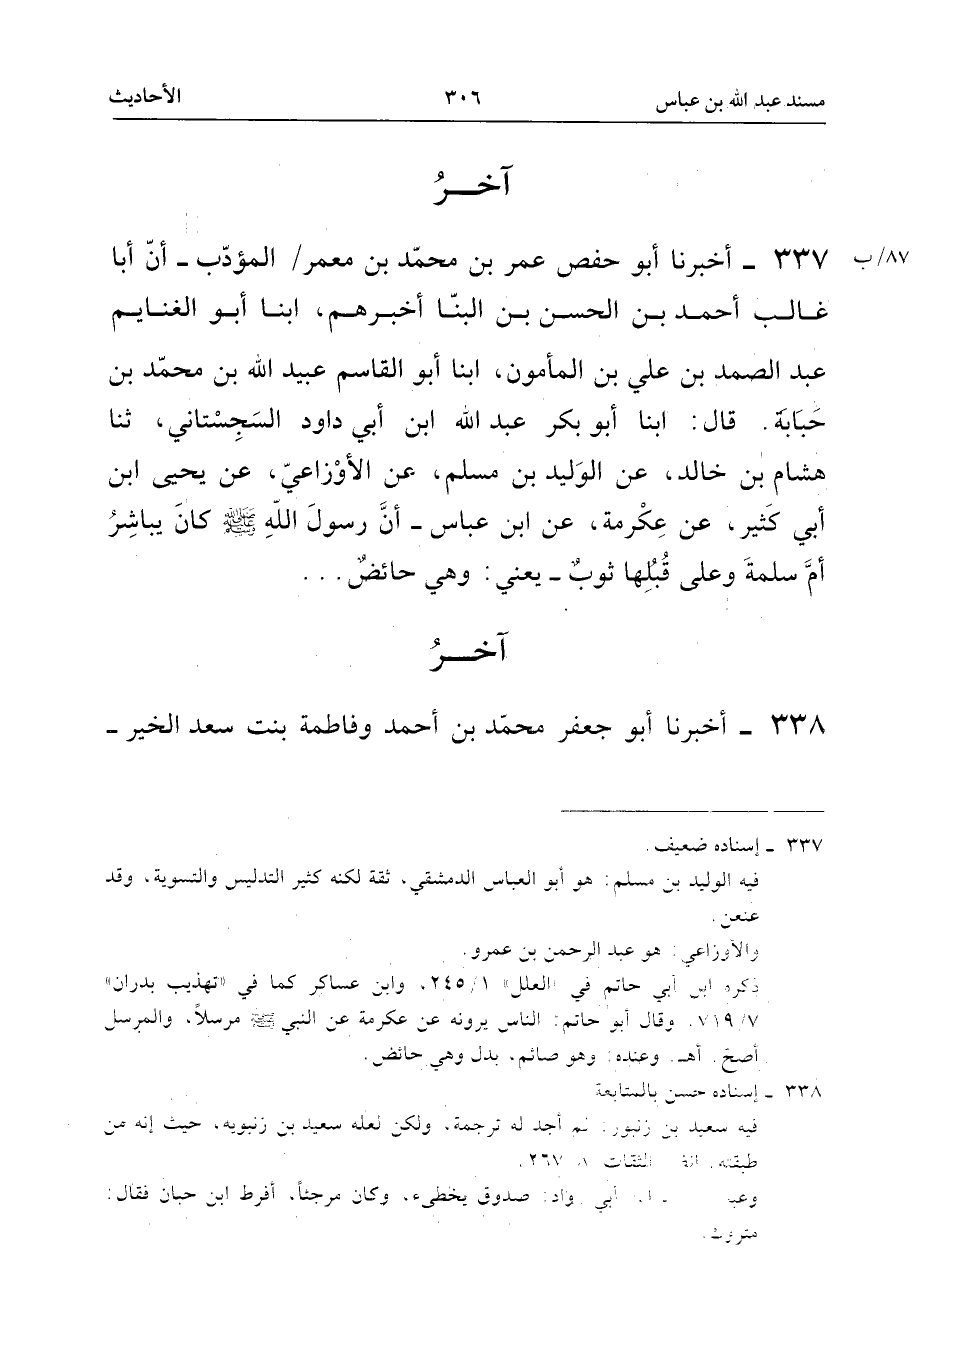 مسند عبد الله بن عباس ٣٠٦ الأحاديث
آخــرُ
٨٧/ب ٣٣٧ ـ أخبرنا أبو حفص عمر بن محمّد بن معمر/ المؤدّب ـ أنّ أبا
غالب أحمد بن الحسن بن البنّا أخبرهم، ابنا أبو الغنايم
عبد الصمد بن علي بن المأمون، ابنا أبو القاسم عبيد الله بن محمّد بن
حَبَابَة. قال: ابنا أبو بكر عبد الله ابن أبي داود السَجِسْتاني، ثنا
هشام بن خالد، عن الوَليد بن مسلم، عن الأوْزاعيّ، عن يحيى ابن
أبي كَثير، عن عِكْرمة، عن ابن عباس ـ أنَّ رسولَ اللَّهِ ﷺ كانَ يباشِرُ
أمَّ سلمةَ وعلى قُبُلِها ثوبٌ ـ يعني: وهي حائضٌ...
آخــرُ
٣٣٨ ـ أخبرنا أبو جعفر محمّد بن أحمد وفاطمة بنت سعد الخير ـ
٣٣٧ ـ إسناده ضعيف.
فيه الوليد بن مسلم: هو أبو العباس الدمشقي، ثقة لكنه كثير التدليس والتسوية، وقد
عنعن.
والأوزاعي: هو عبد الرحمن بن عمرو.
ذكره ابن أبي حاتم في «العلل» ٢٤٥/١، وابن عساكر كما في «تهذيب بدران»
٧١٩/٧. وقال أبو حاتم: الناس يرونه عن عكرمة عن النبي ﷺ مرسلاً، والمرسل
أصح. أهـ. وعنده: وهو صائم، بدل وهي حائض.
٣٣٨ ـ إسناده حسن بالمتابعة
فيه سعيد بن زنبور: لم أجد له ترجمة، ولكن لعله سعيد بن زنبويه، حيث إنه من
طبقته. الثقات ٢٦٧.
أبي صدوق يخطىء، وكان مرجئاً، أفرط ابن حبان فقال:
متروك.